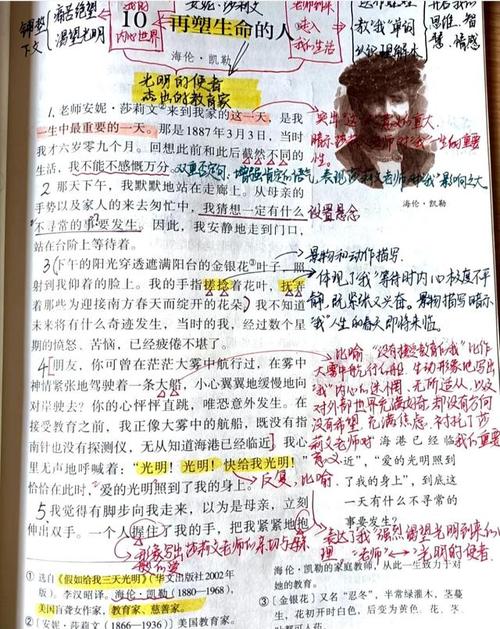 痛苦绝望
渴望光明
下文
内心世界
安妮·莎利文
教"我"单词
10 再塑生命的人
海伦·凯勒
光明的使者
杰出的教育家
1.老师安妮·莎莉文②来到我家的这一天，是我
一生中最重要的一天。那是1887年3月3日，当时
我才六岁零九个月。回想此前和此后截然不同的
生活，我不能不感慨万分。双重否定句，增强肯定的语气，表现莎莉文老师对"我"影响之大
海伦·凯勒
2 那天下午，我默默地站在走廊上。从母亲的
手势以及家人的来去匆忙中，我猜想一定有什么
不寻常的事要发生。因此，我安静地走到门口，
设置悬念
站在台阶上等待着。
3 下午的阳光穿透遮满阳台的金银花③叶子，照
景物和动作描写
射到我仰着的脸上。我的手指搓捻着花叶，抚弄
体现了"我"等待时内心极度不平
着那些为迎接南方春天而绽开的花朵。我不知道
静，既紧张又兴奋。景物描写暗示
未来将有什么奇迹发生，当时的我，经过数个星
"我"人生的春天即将来临。
期的愤怒、苦恼，已经疲倦不堪了。
4 朋友，你可曾在茫茫大雾中航行过，在雾中
神情紧张地驾驶着一条大船，小心翼翼地缓慢地向
对岸驶去？你的心怦怦直跳，唯恐意外发生。在
接受教育之前，我正像大雾中的航船，既没有指
南针也没有探测仪，无从知道海港已经临近。我心
里无声地呼喊着："光明！光明！快给我光明！"
恰恰在此时，爱的光明照到了我的身上。
反复，比喻
比喻，"没有接受教育的我"比作
大雾中航行的船，生动形象地写出
"我"内心的迷惘，无所适从，以及
对外部世界充满好奇，却没有方向
没有希望，充满焦虑。衬托了莎
莉文老师对
我的重要
意义
海港已经临
近"，"爱的光明照到
了我的身上"，到底这
一天有什么不寻常的
事要发生？
5 我觉得有脚步向我走来，以为是母亲，立刻
伸出双手。一个人握住了我的手，把我紧紧地抱
表达了"我"强烈渴望光明到来
"老师"
光明的使者
① 选自《假如给我三天光明》（华文出版社2002年
版）。李汉昭译。海伦·凯勒（1880—1968），
美国盲聋女作家，教育家、慈善家。
② [安妮·莎莉文（1866—1936）]美国教育家。
海伦·凯勒的家庭教师，从此一生致力于对
她的教育。
③ [金银花] 又名"忍冬"，半常绿灌木，茎蔓
生，花初开时白色，后变为黄色，花、茎、
叶都可入药。